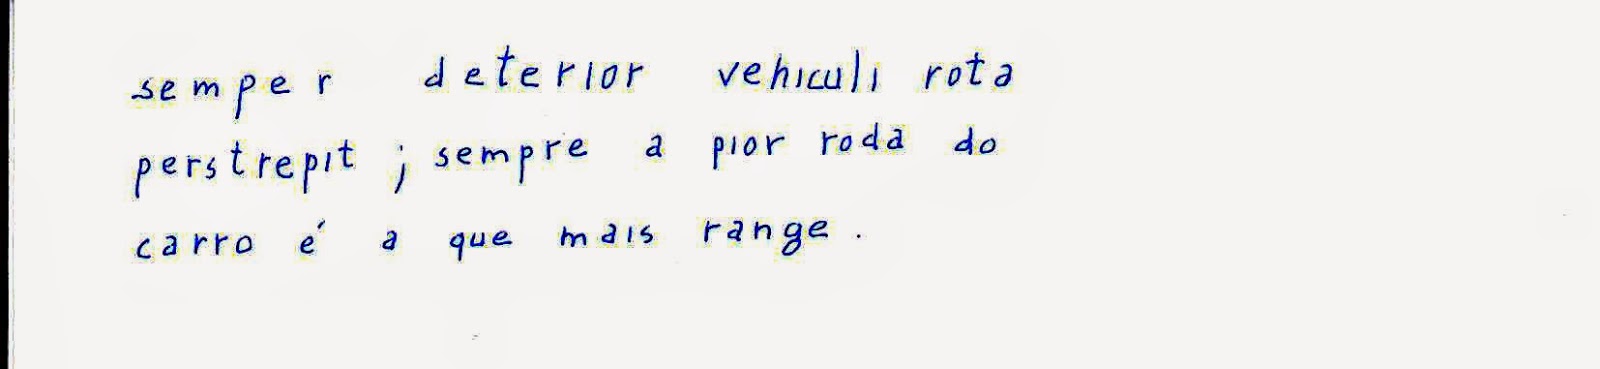 semper deterior vehiculi rota
perstrepit ; sempre a pior roda do
carro é a que mais range .